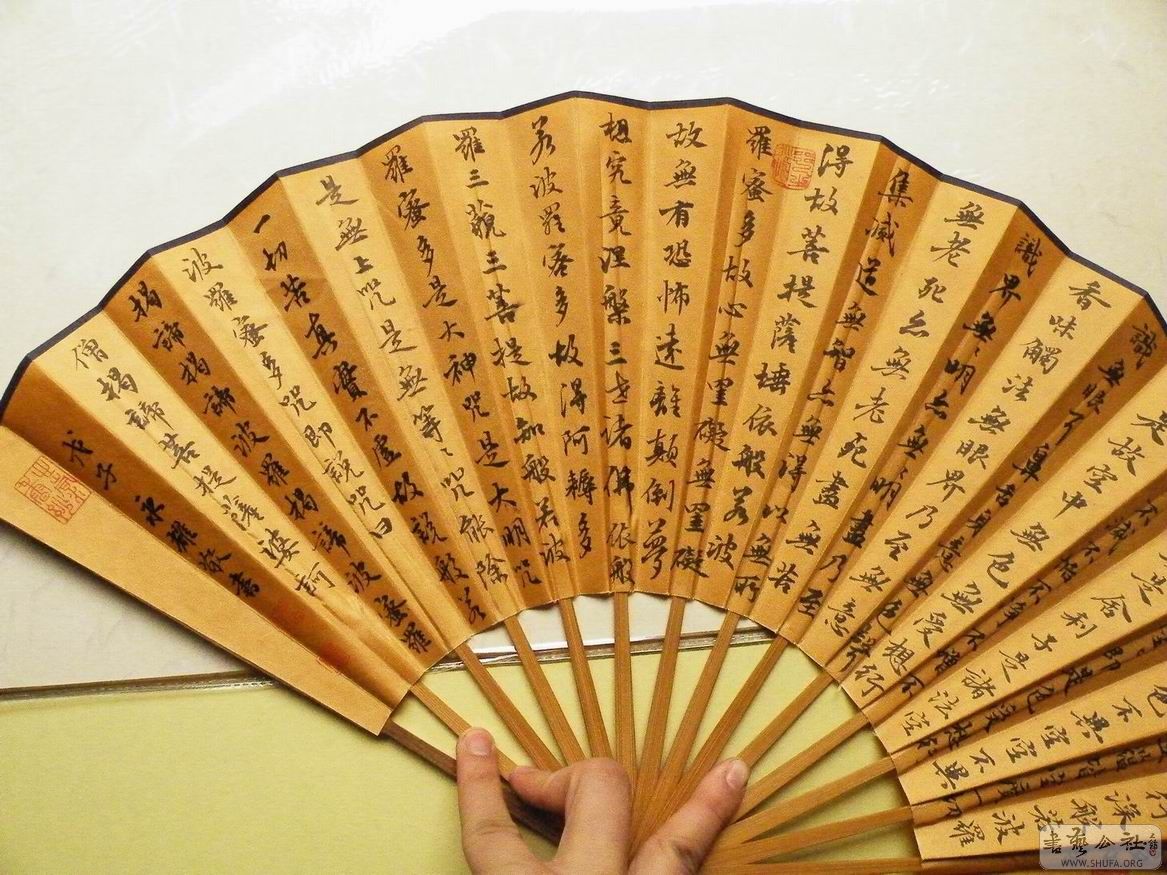 深般若波羅
色不異空空不異
是舍利子是諸法空
是故空中無色無受想行
識無眼耳鼻舌身意無色聲
香味觸法無眼界乃至無意
識界無、明亦無、明盡乃至
無老死亦無老死盡無苦
集滅道無智亦無得以無所
得故菩提薩埵依般若波
羅蜜多故心無罣礙無罣礙
故無有恐怖遠離顛倒夢
想究竟涅槃三世諸佛依般
若波羅蜜多故得阿耨多
羅三藐三菩提故知般若波
羅蜜多是大神咒是大明咒
是無上咒是無等、咒能除
一切苦真實不虛故說般若
波羅蜜多咒即說咒曰
揭諦揭諦波羅揭諦波羅
僧揭諦菩提薩婆訶
戊子
敬書
書藝公社
WWW.SHUFA.ORG